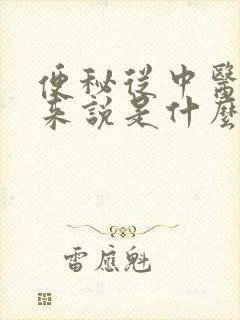 便秘從中醫
来說是什麼
雷應魁